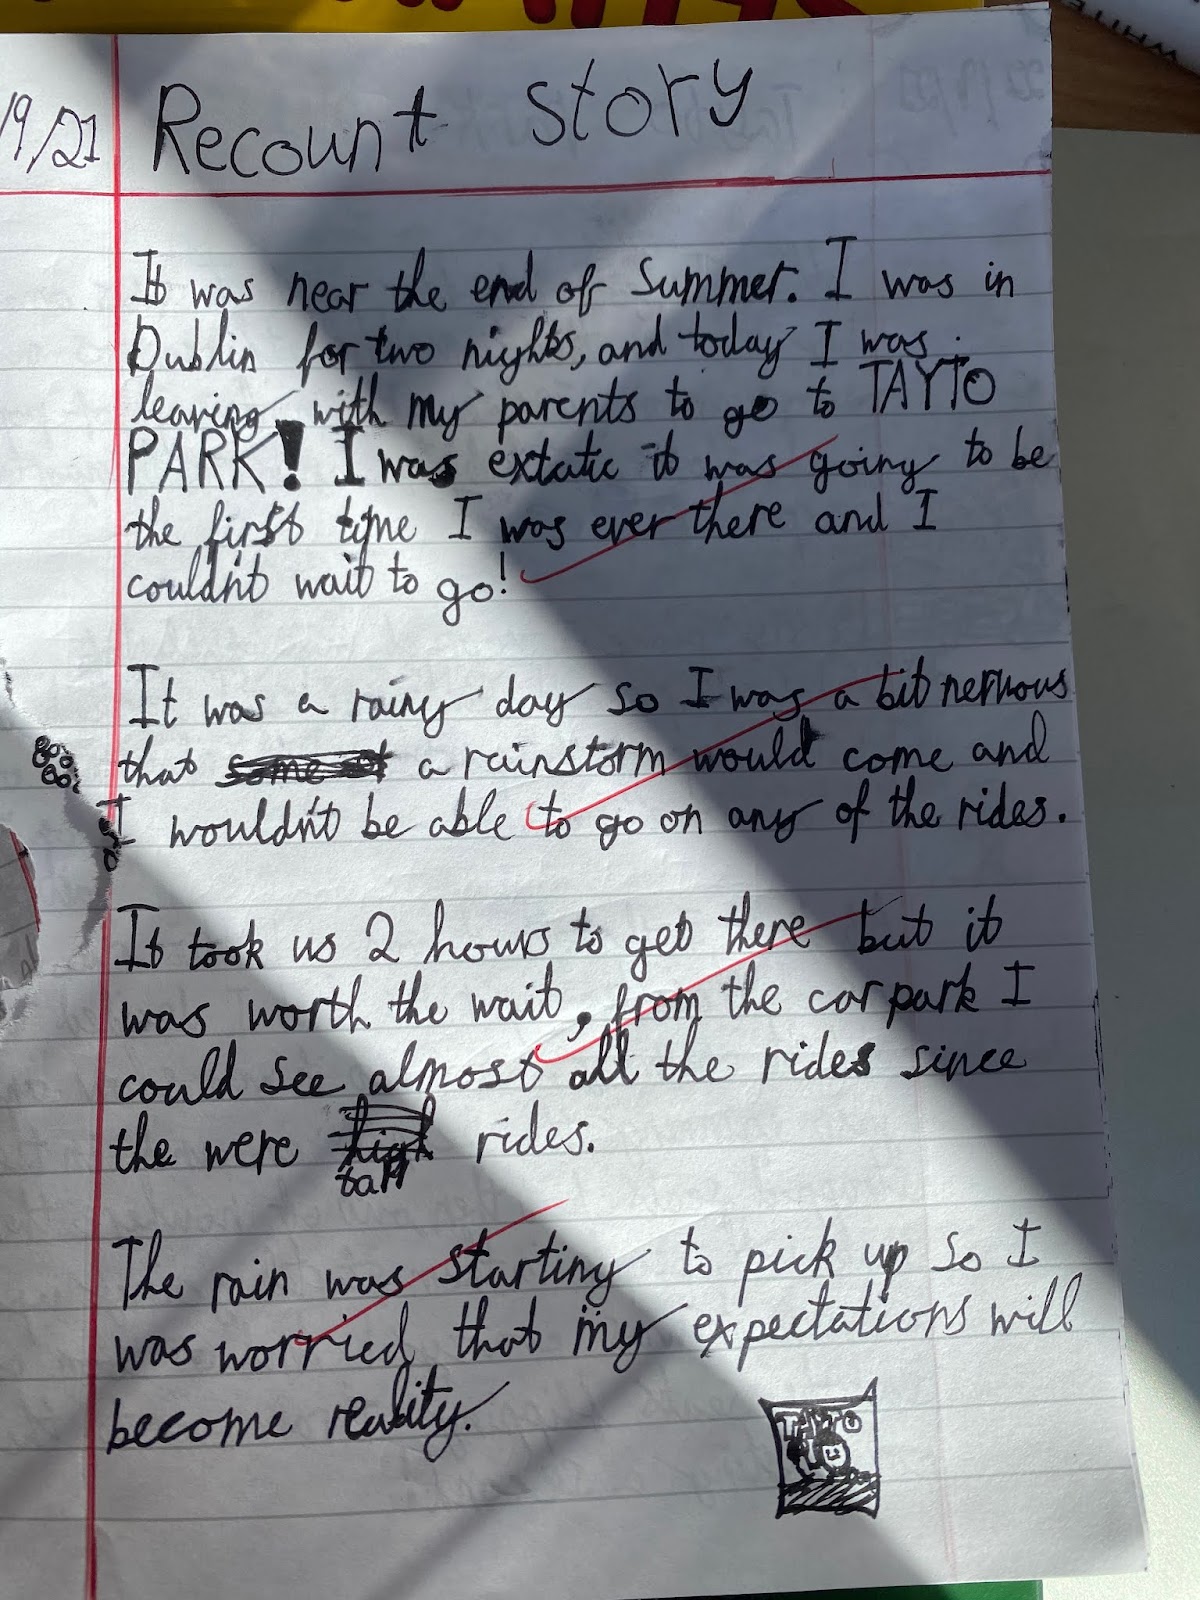 19/21 Recount Story
It was near the end of Summer. I was in
Dublin for two nights, and today I was
leaving with my parents to go to TAYTO
PARK! I was extatic it was going to be
the first time I was ever there and I
couldn't wait to go!
It was a rainy day so I was a bit nervous
that some of a rainstorm would come and
I wouldn't be able to go on any of the rides.
It took us 2 hours to get there but it
was worth the wait, from the car park I
could see almost all the rides since
the were high rides.
tall
The rain was starting to pick up so I
was worried that my expectations will
become reality.
TAYTO
WHITE